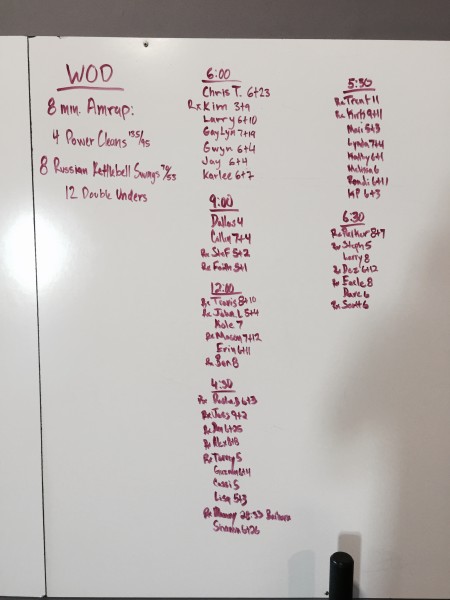 WOD
8 min. Amrap:
4 Power Cleans 135/95
8 Russian Kettlebell Swings 70/53
12 Double Unders
6:00
Chris T. 6+23
Rx Kim 3+9
Larry 6+10
GayLyn 7+19
Gwyn 6+4
Jay 6+4
Karlee 6+7
9:00
Dallas 4
7+4
Rx Stef 5+2
Rx Faith 5+1
12:00
Rx Travis 8+10
Rx John L 5+4
Kole 7
Rx Mason 7+12
Erin 6+11
Rx Ben 8
4:30
Rx 6+3
Rx 9+2
Rx 6+25
Rx Alex
Rx Tammy 5
6+4
Cassi 5
Lisa 5+3
Rx 28:33 Barbara
6+26
5:30
Rx Trent 11
Rx 9+11
5+3
Lynda 7+4
6+1
Melissa 6
6+11
KP 6+3
6:30
Rx Parker 8+7
Rx Steph 5
Larry 8
Rx Dez 6+12
Rx Earle 8
Dave 6
Rx Scott 6